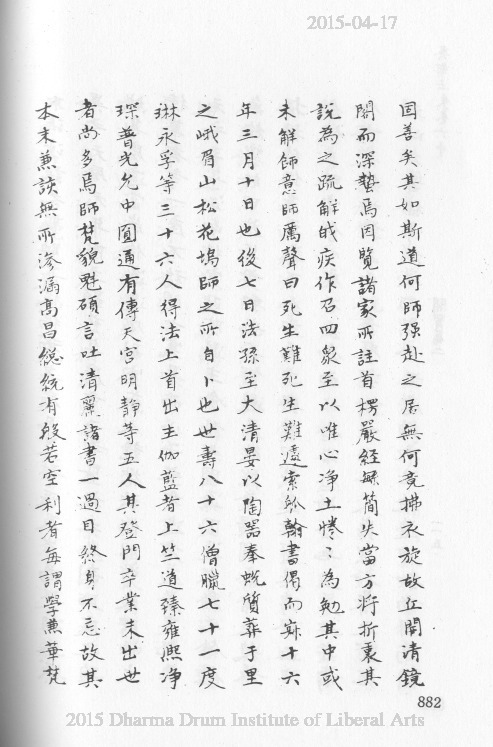 2015-04-17
固善矣其如斯道何師强赴之居無何竟拂衣旋故丘閱清鏡
閣而深蟄焉因覽諸家所註首楞嚴經繁簡失當方將折衷其
說為之疏解俄疾作召四衆至以唯心净土惓〻為勉其中或
未解師意師厲聲曰死生難死生難遽索觚翰書偈而寂十六
年三月十日也後七日法孫至大清晏以陶器奉蛻質葬于里
之峨眉山松花塢師之所自卜也世壽八十六僧臘七十一度
琳永孚等三十六人得法上首出主伽藍者上竺道臻雍熙净
琛普光允中圓通有傳天宮明静等五人其登門卒業未出世
者尚多焉師梵貌魁碩言吐清麗諸書一過目終身不忘故其
本末兼該無所滲漏高昌總統有般若空利者每謂學兼華梵
882
2015 Dharma Drum Institute of Liberal Arts